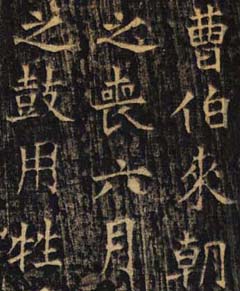 曹伯來朝
之喪六月
之鼓用牲